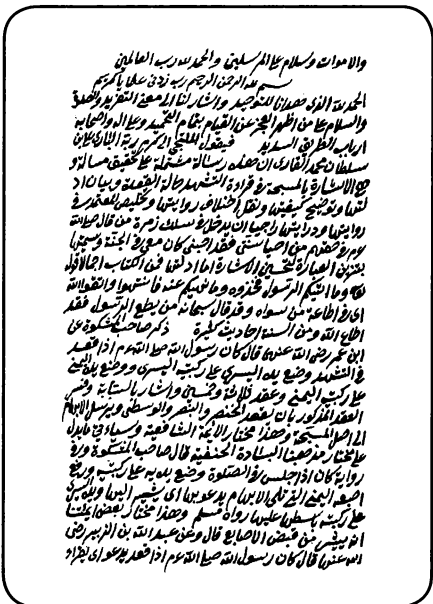 والاموات وسلام على المرسلين والحمد لله رب العالمين
بسم الله الرحمن الرحيم رب زدنى علما يا كريم
الحمد لله الذى هدانا للتوحيد واشار لنا الى معنى التفريد والصلوة
والسلام على من اظهر العجز عن القيام بمقام التحميد وعلى اله واصحابه
ارباب الطريق السديد فيقول الملتجى الى حرم ربه البارى على بن
سلطان محمد القارى ان هذه رسالة مشتملة على تحقيق مسالة
الاشارة بالمسبحة فى قراءة التشهد حالة القعدة وبيان اد
لتها وتوضيح كيفيتها ونقل اختلاف روايتها وتخليص
روايتها ودرايتها راجيا ان يدخل فى سلك زمرة من قال صلى الله
عم فى حقهم من احيا سنتى فقد احبنى كان معى فى الجنة وسميتها
بتزيين العبارة لتحسين الاشارة اما ادلتها فمن الكتاب اجمالا قوله
وما اتيكم الرسول فخذوه وما نهيكم عنه فانتهوا واتقوا الله
اى فى اطاعة من سواه وقد قال سبحانه من يطع الرسول فقد
اطاع الله ومن السنة احاديث كثيرة ذكر صاحب المشكوة عن
ابن عمر رضى الله عنهما قال كان رسول الله صلى الله عم اذا قعد
فى التشهد وضع يده اليسرى على ركبته اليسرى ووضع يده اليمنى
على ركبته اليمنى وعقد ثلاثة وخمسين واشار بالسبابة وفسر
العقد المذكور بان يعقد الخنصر والبنصر والوسطى ويرسل الابهام
الى اصل المسبحة وهذا مختار الائمة الشافعية وسياتى ما يدل
على مختار مذهبنا السادة الحنفية قال صاحب المشكوة وفى
رواية كان اذا جلس فى الصلوة وضع يديه على ركبتيه ورفع
اصبعه اليمنى التى تلى الابهام يدعو بها اى يشير اليها ويده اليسرى
على ركبته باسطها عليها رواه مسلم وهذا مختار بعض ائمتنا
انه يشير من قبض الاصابع قال وعن عبد الله بن الزبير رضى
الله عنهما قال كان رسول الله صلى الله عم اذا قعد يدعو اى يقراء